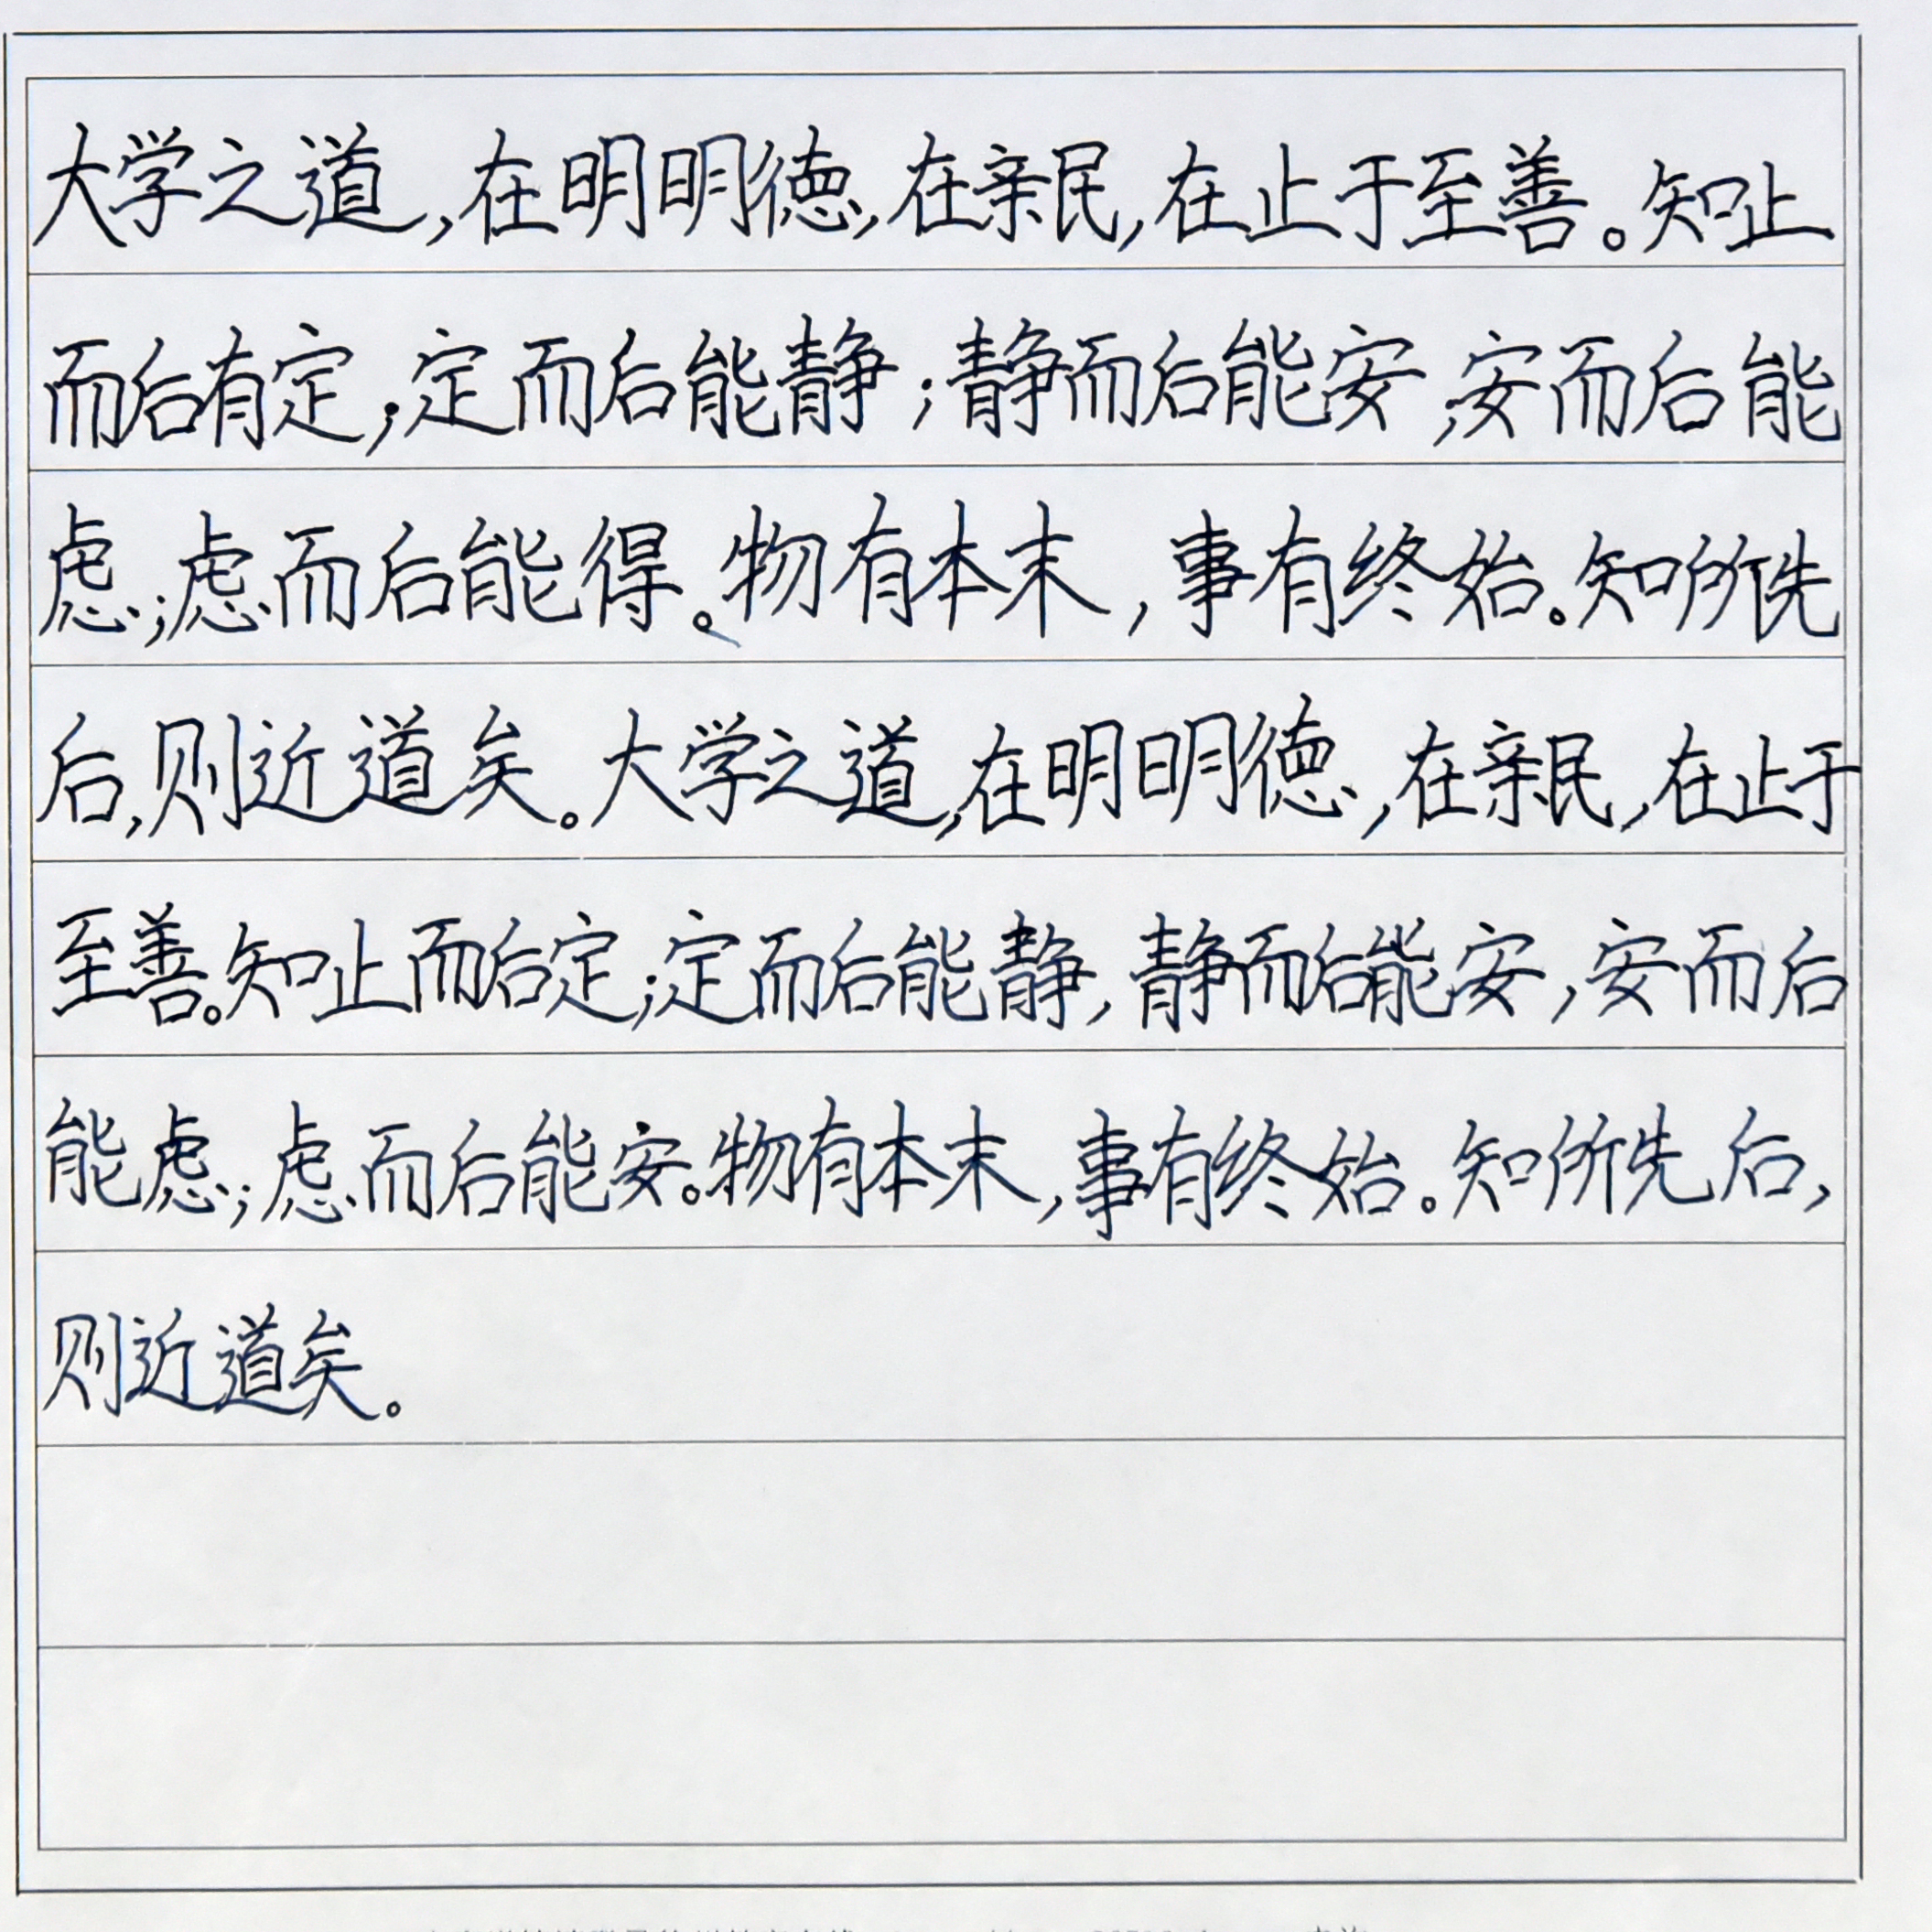 大学之道,在明明德,在亲民,在止于至善。知止
而后有定;定而后能静;静而后能安;安而后能
虑;虑而后能得。物有本末,事有终始。知所先
后,则近道矣。大学之道,在明明德,在亲民,在止于
至善。知止而后定;定而后能静,静而后能安,安而后
能虑;虑而后能安。物有本末,事有终始。知所先后,
则近道矣。